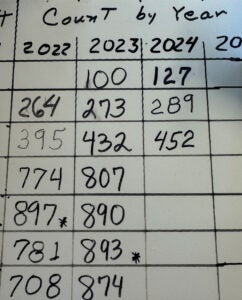 Count by Year
2022 2023 2024 20
100 127
264 273 289
395 432 452
774 807
897* 890
781 893*
708 874